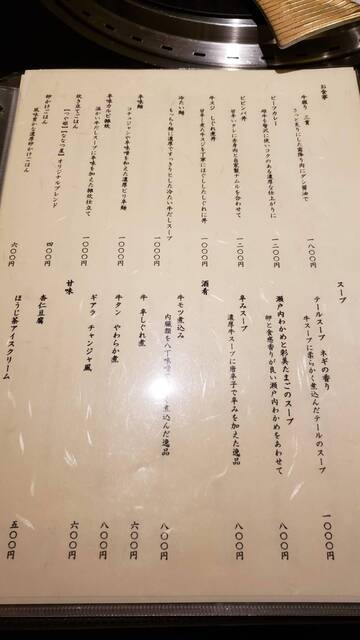 お食事
牛握り 二貫
さっと炙りにした霜降り肉にダシ醤油で
一八〇〇円
ビーフカレー
雌牛を贅沢に使いコクのある濃厚な仕上がりに
一二〇〇円
ビビンバ丼
甘辛いタレに赤身肉と自家製ナムルを合わせて
一二〇〇円
牛スジ しぐれ煮丼
甘辛く煮た牛スジを丁寧にほぐししたしぐれに丼
一〇〇〇円
冷たい麺
もっちり麺は濃厚ですっきりとした冷たい牛だしスープ
一〇〇〇円
辛味麺
コチュジャンや辛味噌を和えた濃厚ピリ辛麺
一〇〇〇円
辛味カルビ雑炊
温かい牛だしスープに辛味を加えた雑炊仕立て
一〇〇〇円
炊き立てごはん
【つや姫】【ななつ星】オリジナルブレンド
四〇〇円
卵かけごはん
風味豊かな濃厚卵かけごはん
六〇〇円
スープ
テールスープ ネギの香り
牛スープに柔らかく煮込んだテールのスープ
一〇〇〇円
瀬戸内わかめと彩美たまごのスープ
卵と食感香りが良い瀬戸内わかめをあわせて
八〇〇円
辛みスープ
濃厚牛スープに唐辛子で辛みを加えた逸品
八〇〇円
酒肴
牛モツ煮込み
内臓類を八丁味噌 煮込んだ逸品
八〇〇円
牛 辛しぐれ煮
六〇〇円
牛タン やわらか煮
八〇〇円
ギアラ チャンジャ風
六〇〇円
甘味
杏仁豆腐
ほうじ茶アイスクリーム
五〇〇円